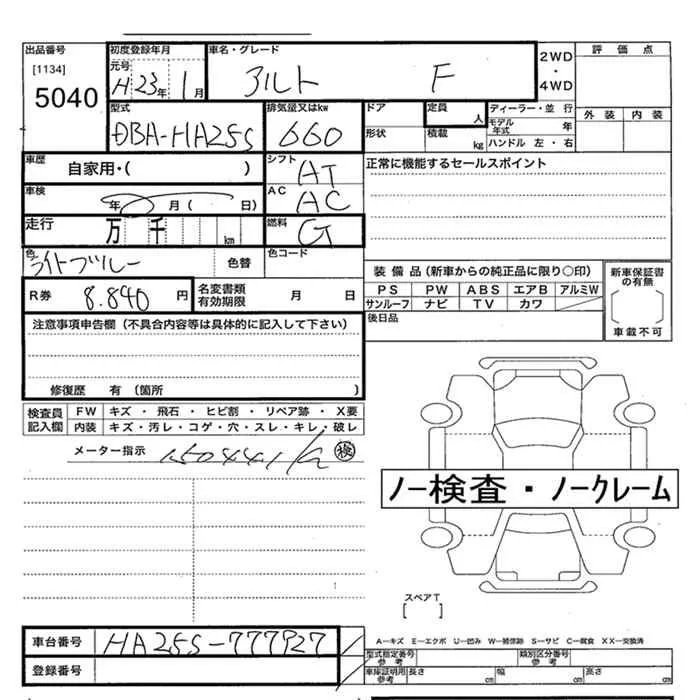 出品番号
[1134]
5040
初度登録年月
元号
H 23年 1月
車名・グレード
アルト F
2WD
・
4WD
評 価 点
外 装 内 装
型式
DBA-HA25S
排気量又はkw
660
ドア
形状
定員
人
積載
kg
ディーラー・並 行
モデル年式 年
ハンドル 左・右
車歴
自家用・( )
シフト
AT
正常に機能するセールスポイント
車検
年 月( 日)
AC
AC
走行
万 千 km
燃料
G
色
ライトブルー
色替
色コード
R券
8.840 円
名変書類
有効期限
月 日
装 備 品(新車からの純正品に限り○印)
PS PW ABS エアB アルミW
サンルーフ ナビ TV カワ
新車保証書
の有無
車載不可
後日品
注意事項申告欄(不具合内容等は具体的に記入して下さい)
修復歴 有(箇所 )
検査員
記入欄
FW キズ ・ 飛石 ・ ヒビ割 ・ リペア跡 ・ X要
内装 キズ・汚レ・コゲ・穴・スレ・キレ・破レ
メーター指示
150441k 検
ノー検査・ノークレーム
スペアT
[ ]
A―キズ E―エクボ U―凹み W―補修跡 S―サビ C―腐食 XX―交換済
車台番号
HA25S-777927
登録番号
型式指定番号
参考
類別区分番号
参考
車庫証明用
参考
長さ cm 幅 cm 高さ cm